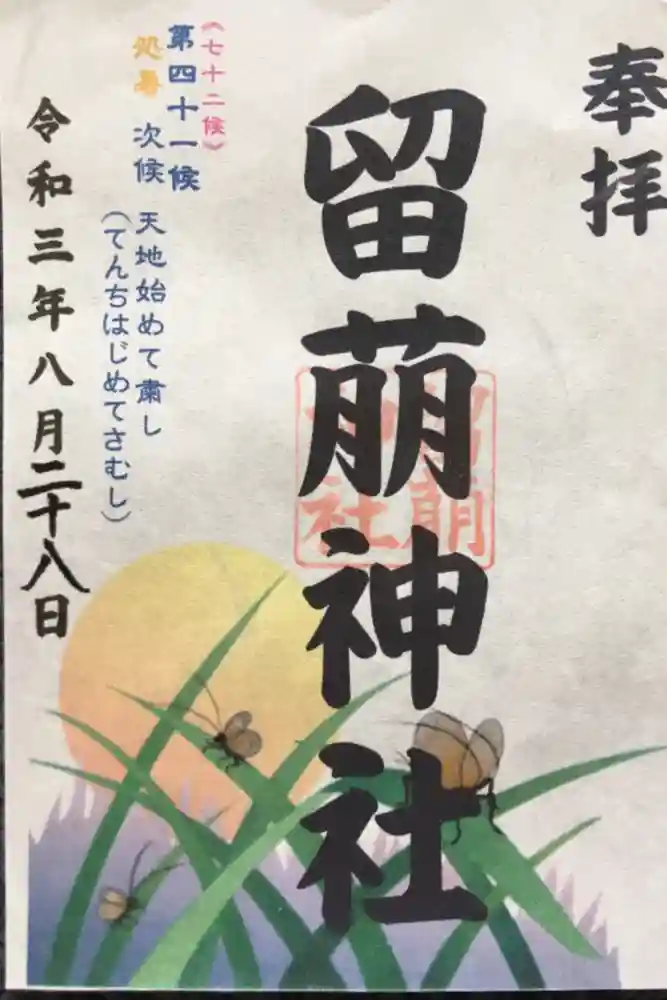 奉拝
留萌神社
留萌
神社
(七十二候)
第四十一候
処暑 次候 天地始めて粛し
(てんちはじめてさむし)
令和三年八月二十八日